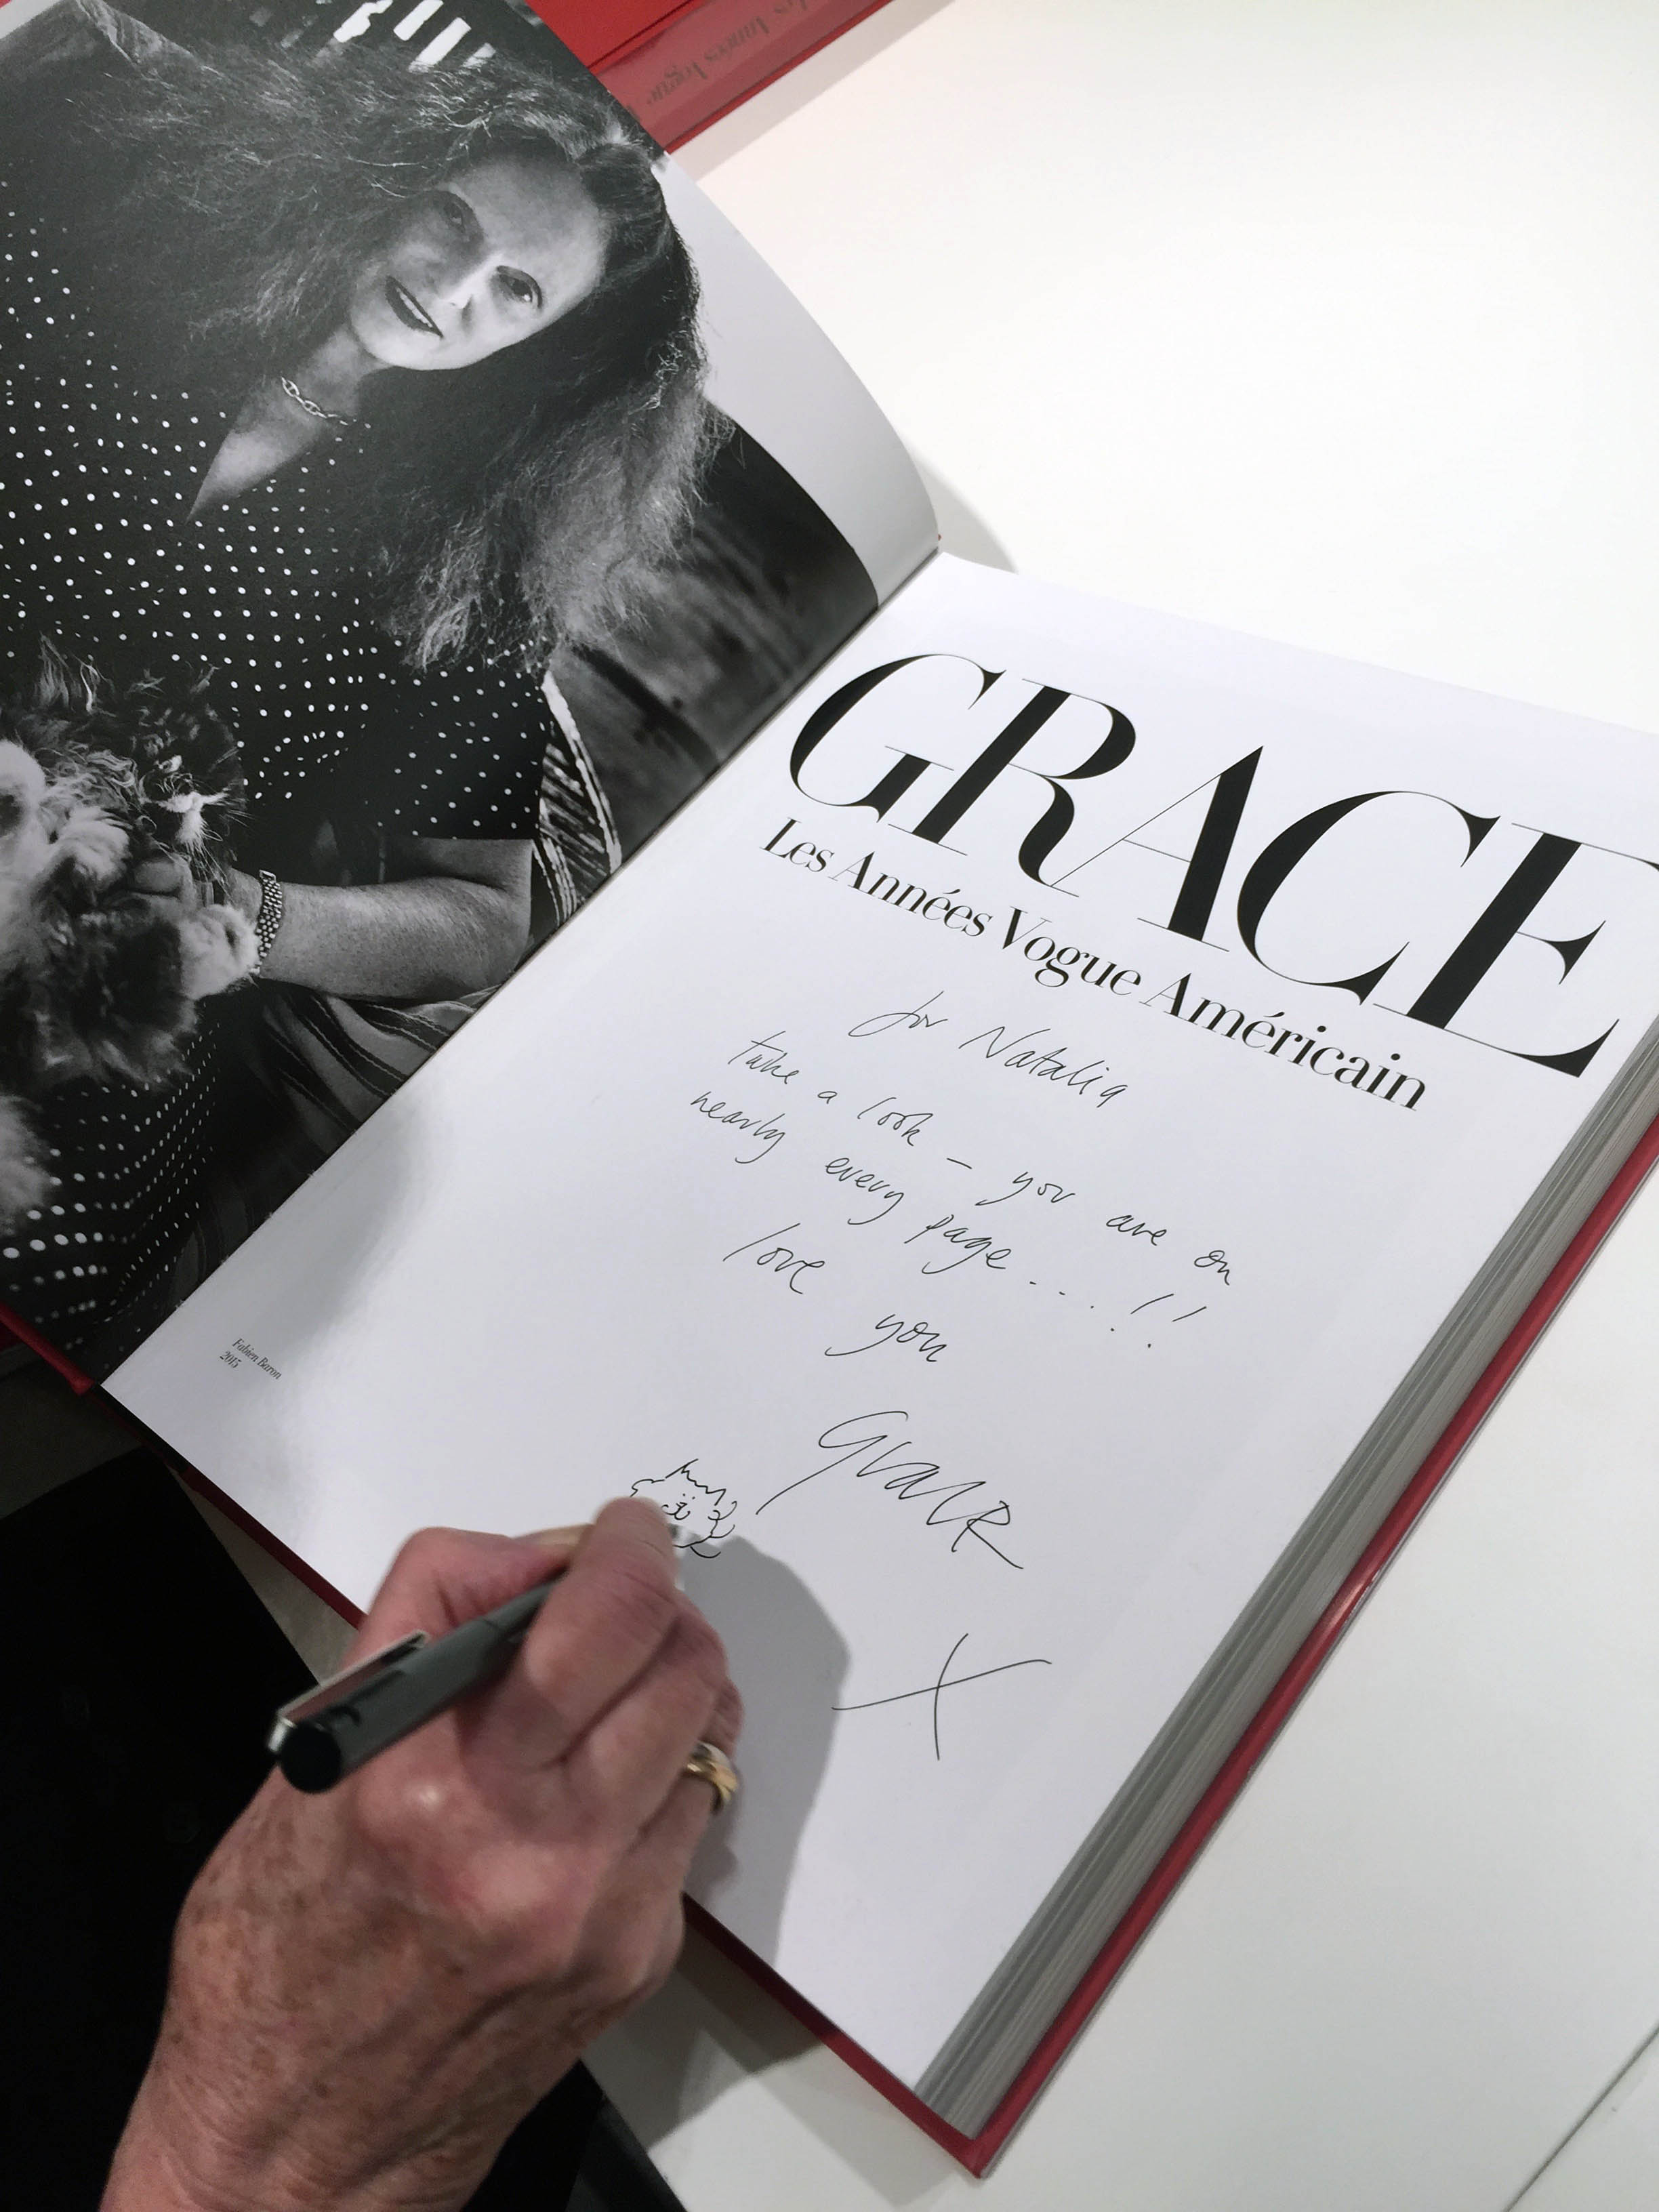 Les Années Vogue
GRACE
Les Années Vogue Américain
for Natalia
take a look – you are on
nearly every page....!!
love you
Grace
X
Fabien Baron
2015